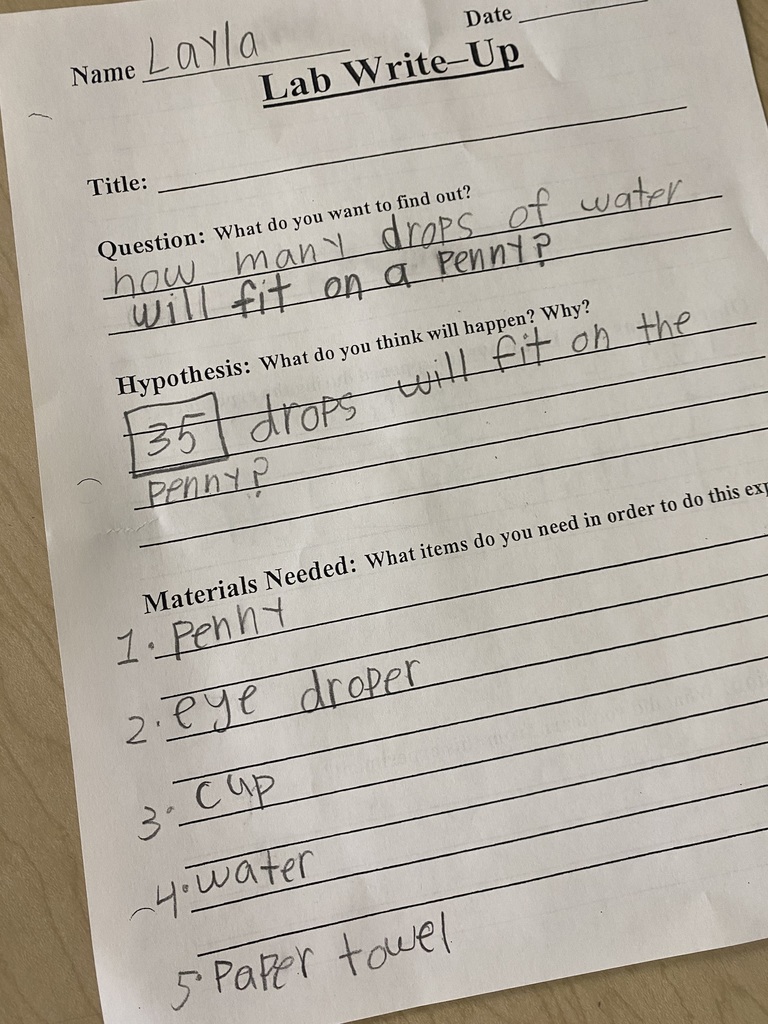 Name Layla Date
Lab Write-Up
Title:
Question: What do you want to find out?
how many drops of water
will fit on a penny?
Hypothesis: What do you think will happen? Why?
35 drops will fit on the
penny?
Materials Needed: What items do you need in order to do this
1. Penny
2. eye droper
3. cup
4. water
5. Paper towel